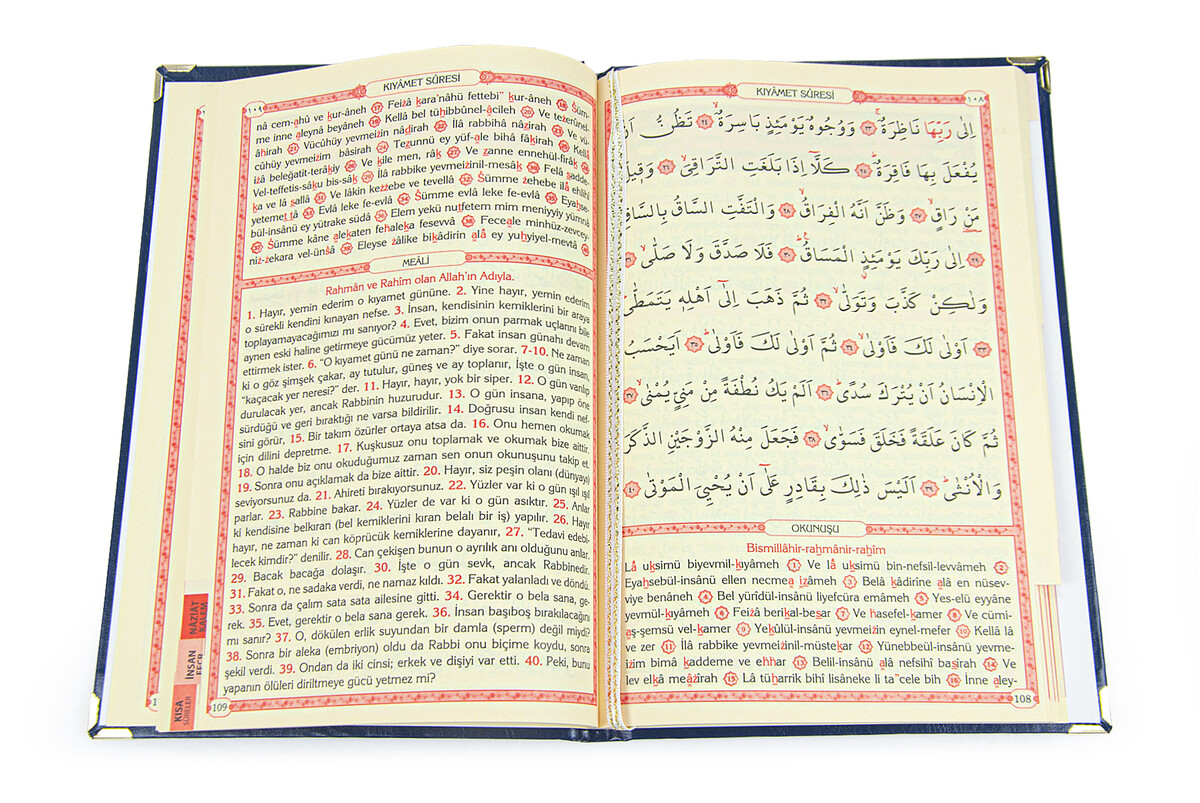 KIYÂMET SÛRESİ
١٠٨
اِلٰى رَبِّهَا نَاظِرَةٌۚ ﴿٢٣﴾ وَوُجُوهٌ يَوْمَئِذٍ بَاسِرَةٌۙ ﴿٢٤﴾ تَظُنُّ اَنْ
يُفْعَلَ بِهَا فَاقِرَةٌۜ ﴿٢٥﴾ كَلَّٓا اِذَا بَلَغَتِ التَّرَاقِيَۙ ﴿٢٦﴾ وَق۪يلَ
مَنْ رَاقٍۙ ﴿٢٧﴾ وَظَنَّ اَنَّهُ الْفِرَاقُۙ ﴿٢٨﴾ وَالْتَفَّتِ السَّاقُ بِالسَّاقِ
﴿٢٩﴾ اِلٰى رَبِّكَ يَوْمَئِذٍ الْمَسَاقُۜ ﴿٣٠﴾ فَلَا صَدَّقَ وَلَا صَلّٰىۙ
وَلٰكِنْ كَذَّبَ وَتَوَلّٰىۙ ﴿٣٢﴾ ثُمَّ ذَهَبَ اِلٰٓى اَهْلِه۪ يَتَمَطّٰىۜ
﴿٣٣﴾ اَوْلٰى لَكَ فَاَوْلٰىۙ ﴿٣٤﴾ ثُمَّ اَوْلٰى لَكَ فَاَوْلٰىۜ ﴿٣٥﴾ اَيَحْسَبُ
الْاِنْسَانُ اَنْ يُتْرَكَ سُدًىۜ ﴿٣٦﴾ اَلَمْ يَكُ نُطْفَةً مِنْ مَنِيٍّ يُمْنٰىۙ ﴿٣٧﴾
ثُمَّ كَانَ عَلَقَةً فَخَلَقَ فَسَوّٰىۙ ﴿٣٨﴾ فَجَعَلَ مِنْهُ الزَّوْجَيْنِ الذَّكَرَ
وَالْاُنْثٰىۜ ﴿٣٩﴾ اَلَيْسَ ذٰلِكَ بِقَادِرٍ عَلٰٓى اَنْ يُحْيِيَ الْمَوْتٰى ﴿٤٠﴾
OKUNUŞU
Bismillâhir-rahmânir-rahîm
Lâ uksimü biyevmil-kıyâmeh 1 Ve lâ uksimü bin-nefsil-levvâmeh 2
Eyahsebül-insânü ellen necmea izâmeh 3 Belâ kâdirîne alâ en nüsev-
viye benâneh 4 Bel yürîdül-insânü liyefcüra emâmeh 5 Yes-elü eyyâne
yevmül-kıyâmeh 6 Feizâ berikal-besar 7 Ve hasefel-kamer 8 Ve cümi-
aş-şemsü vel-kamer 9 Yekûlül-insânü yevmeizin eynel-mefer 10 Kellâ lâ
ve zer 11 İlâ rabbike yevmeizinil-müstekar 12 Yünebbeül-insânü yevme-
izim bimâ kaddeme ve ehhar 13 Belil-insânü alâ nefsihî basîrah 14 Ve
lev elkâ meâzîrah 15 Lâ tüharrik bihî lisâneke li ta"cele bih 16 İnne aley-
108
١٠٩
KIYÂMET SÛRESİ
nâ cem-ahû ve kur-âneh 17 Feizâ kara'nâhü fettebi" kur-âneh 18 Süm-
me inne aleynâ beyâneh 19 Kellâ bel tühibbûnel-âcileh 20 Ve tezerûnel-
âhırah 21 Vücûhüy yevmeizin nâdirah 22 İlâ rabbihâ nâzirah 23 Ve vü-
cûhüy yevmeizim bâsirah 24 Tezunnü ey yüf-ale bihâ fâkırah 25 Kellâ
izâ beleğatit-terâkıy 26 Ve kıle men, râk 27 Ve zanne ennehül-firâk 28
Vel-teffetis-sâku bis-sâk 29 İlâ rabbike yevmeizinil-mesâk 30 Felâ sadde-
ka ve lâ sallâ 31 Ve lâkin kezzebe ve tevellâ 32 Sümme zehebe ilâ ehlihî
yetemet tâ 33 Evlâ leke fe-evlâ 34 Sümme evlâ leke fe-evlâ 35 Eyahse-
bül-insânü ey yütrake südâ 36 Elem yekü nutfetem mim meniyyiy yümnâ
37 Sümme kâne alekaten fehaleka fesevvâ 38 Feceale minhüz-zevcey-
niz-zekara vel-ünsâ 39 Eleyse zâlike bikâdirin alâ ey yuhyiyel-mevtâ 40
MEÂLİ
Rahmân ve Rahîm olan Allah'ın Adıyla.
1. Hayır, yemin ederim o kıyamet gününe. 2. Yine hayır, yemin ederim
o sürekli kendini kınayan nefse. 3. İnsan, kendisinin kemiklerini bir araya
toplayamayacağımızı mı sanıyor? 4. Evet, bizim onun parmak uçlarını bile
aynen eski haline getirmeye gücümüz yeter. 5. Fakat insan günahı devam
ettirmek ister. 6. “O kıyamet günü ne zaman?” diye sorar. 7-10. Ne zaman
ki o göz şimşek çakar, ay tutulur, güneş ve ay toplanır, İşte o gün insan,
“kaçacak yer neresi?” der. 11. Hayır, hayır, yok bir siper. 12. O gün varılıp
durulacak yer, ancak Rabbinin huzurudur. 13. O gün insana, yapıp öne
sürdüğü ve geri bıraktığı ne varsa bildirilir. 14. Doğrusu insan kendi nef-
sini görür, 15. Bir takım özürler ortaya atsa da. 16. Onu hemen okumak
için dilini depretme. 17. Kuşkusuz onu toplamak ve okumak bize aittir.
18. O halde biz onu okuduğumuz zaman sen onun okunuşunu takip et.
19. Sonra onu açıklamak da bize aittir. 20. Hayır, siz peşin olanı (dünyayı)
seviyorsunuz da. 21. Ahireti bırakıyorsunuz. 22. Yüzler var ki o gün ışıl ışıl
parlar. 23. Rabbine bakar. 24. Yüzler de var ki o gün asıktır. 25. Anlar
ki kendisine belkıran (bel kemiklerini kıran belalı bir iş) yapılır. 26. Hayır
hayır, ne zaman ki can köprücük kemiklerine dayanır, 27. “Tedavi edebi-
lecek kimdir?” denilir. 28. Can çekişen bunun o ayrılık anı olduğunu anlar.
29. Bacak bacağa dolaşır. 30. İşte o gün sevk, ancak Rabbinedir.
31. Fakat o, ne sadaka verdi, ne namaz kıldı. 32. Fakat yalanladı ve döndü.
33. Sonra da çalım sata sata ailesine gitti. 34. Gerektir o bela sana, ge-
rek. 35. Evet, gerektir o bela sana gerek. 36. İnsan başıboş bırakılacağını
mı sanır? 37. O, dökülen erlik suyundan bir damla (sperm) değil miydi?
38. Sonra bir aleka (embriyon) oldu da Rabbi onu biçime koydu, sonra
şekil verdi. 39. Ondan da iki cinsi; erkek ve dişiyi var etti. 40. Peki, bunu
yapanın ölüleri diriltmeye gücü yetmez mi?
109
NÂZİÂT
KALEM
İNSAN
FECR
KISA
SÛRELER